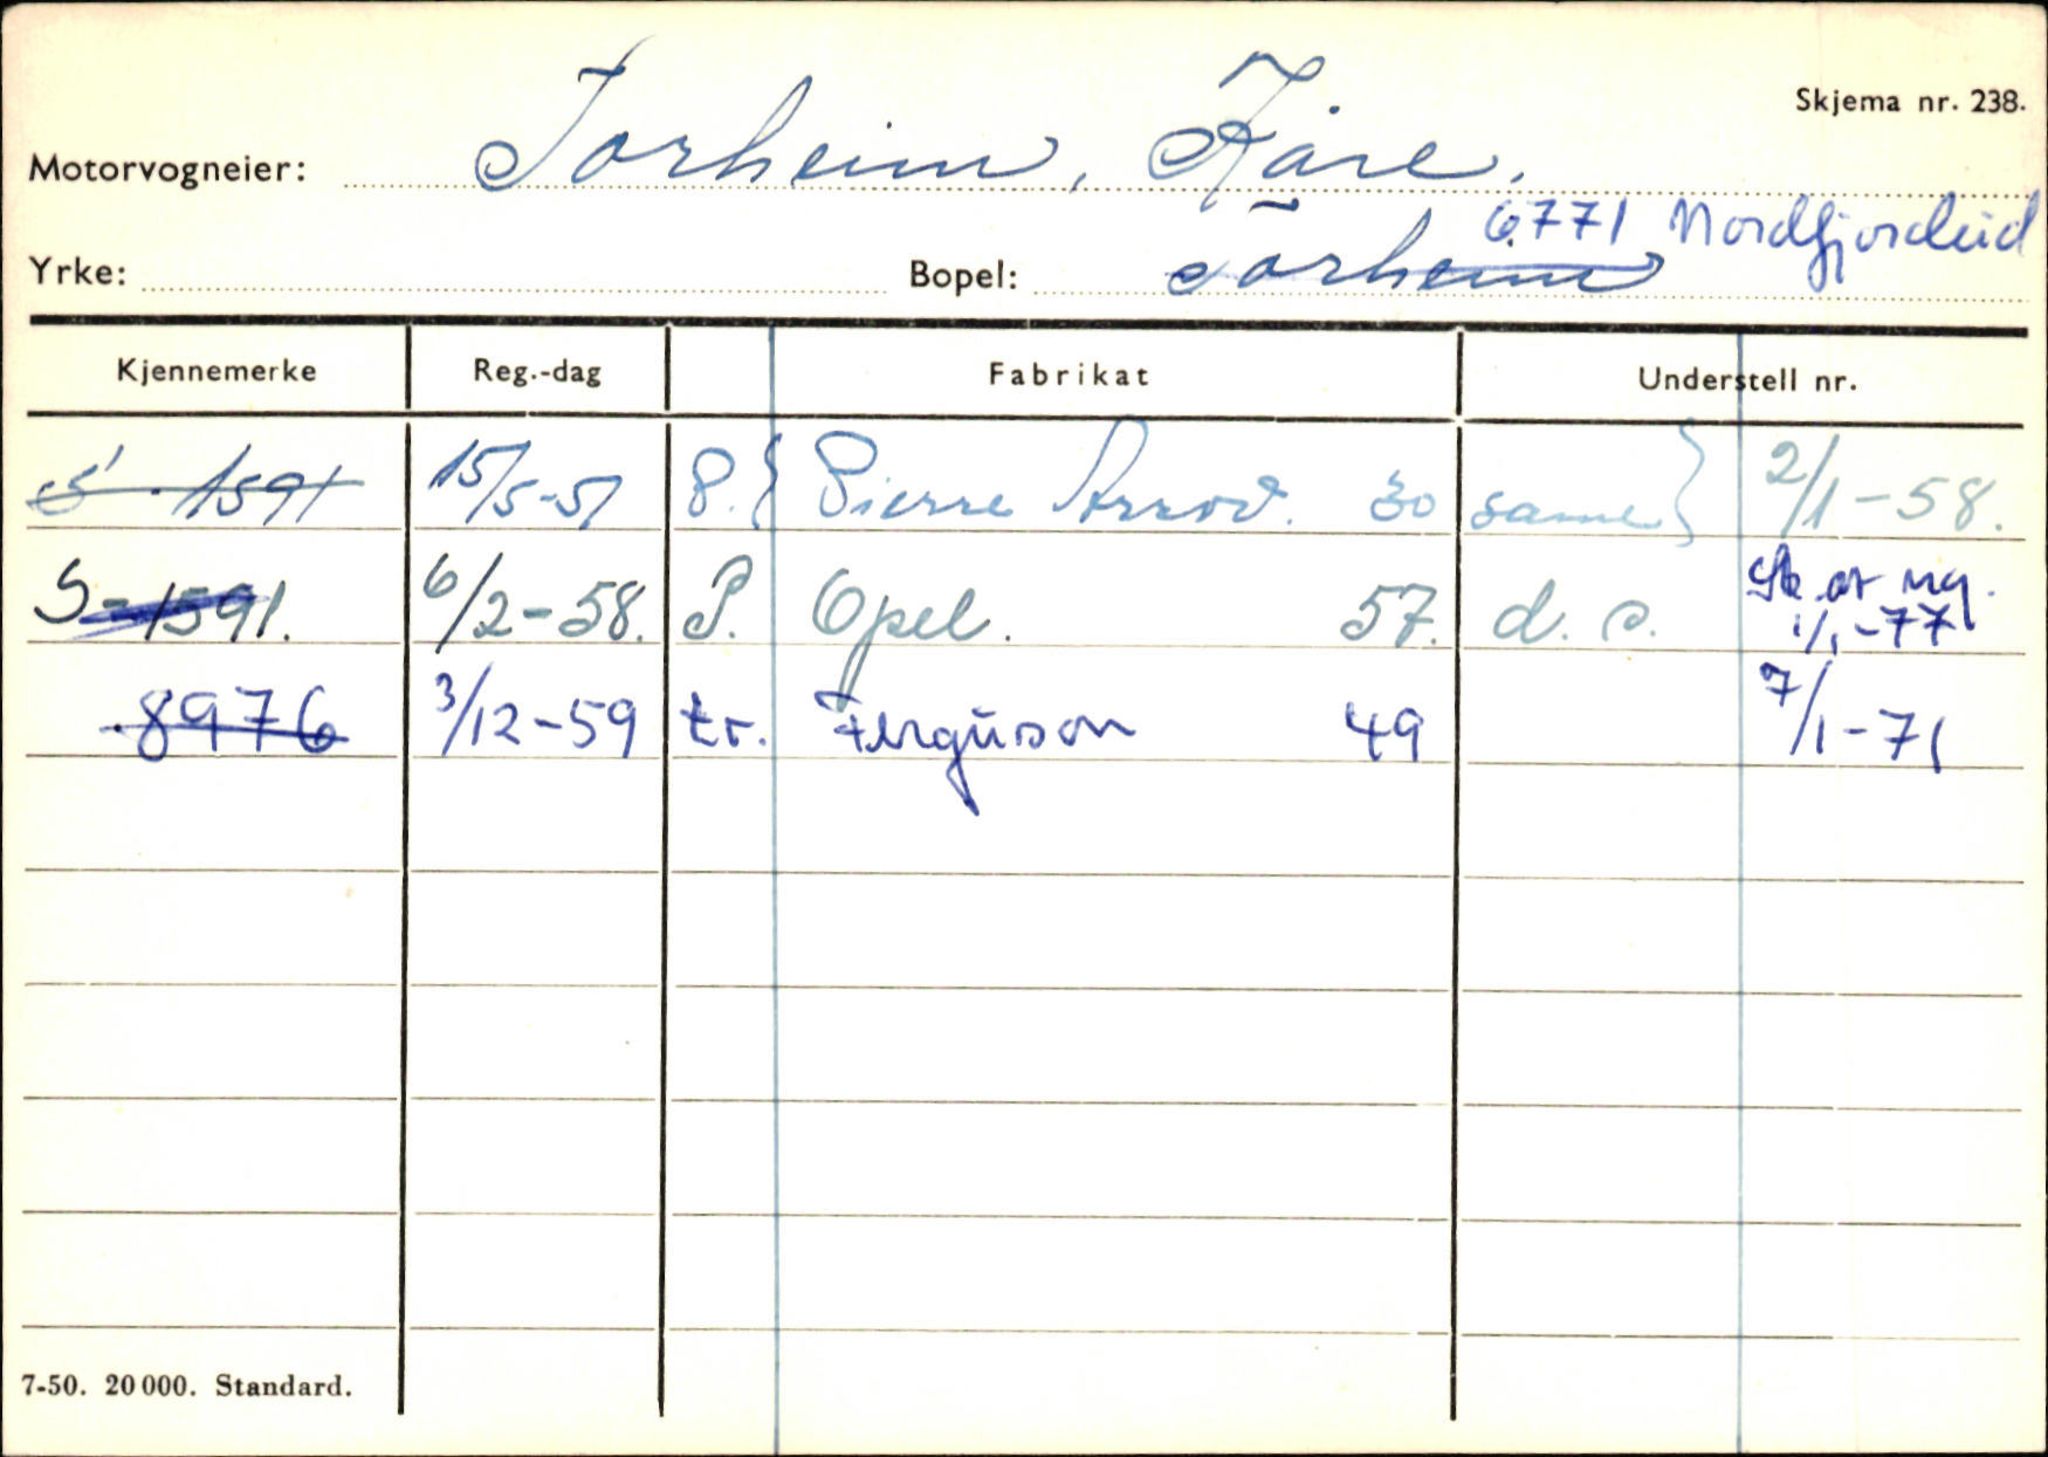 Skjema nr. 238.
Motorvogneier: Torheim, Kåre.
6771 Nordfjordeid
Yrke: Bopel: Torheim
Kjennemerke Reg.-dag Fabrikat Understell nr.
S - 1591 15/5-51 P. Pierre Arrow. 30 same 2/1-58.
S-1591. 6/2-58. P. Opel. 57. d. o. av reg. 1/1-77
8976 3/12-59 tr. Ferguson 49 7/1-71
7-50. 20000. Standard.